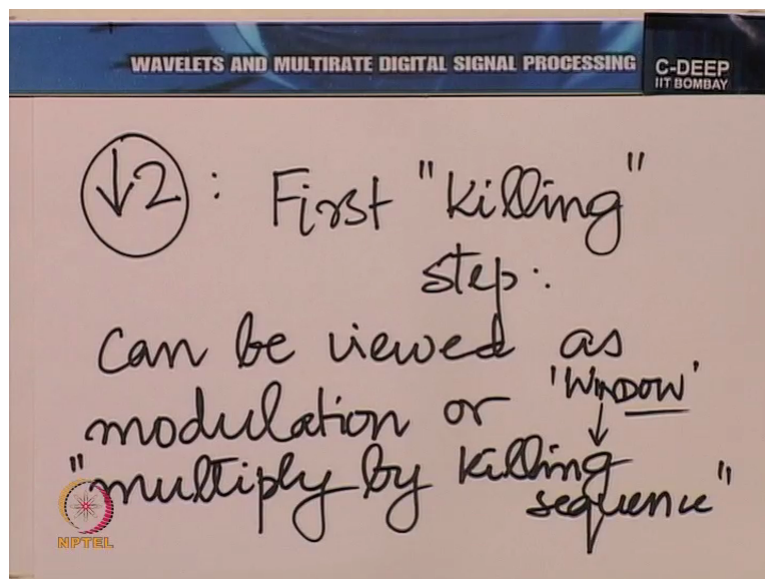 WAVELETS AND MULTIRATE DIGITAL SIGNAL PROCESSING
C-DEEP
IIT BOMBAY
↓2 : First "Killing"
step:
can be viewed as
modulation or 'WINDOW'
↓
"multiply by Killing
sequence"
NPTEL